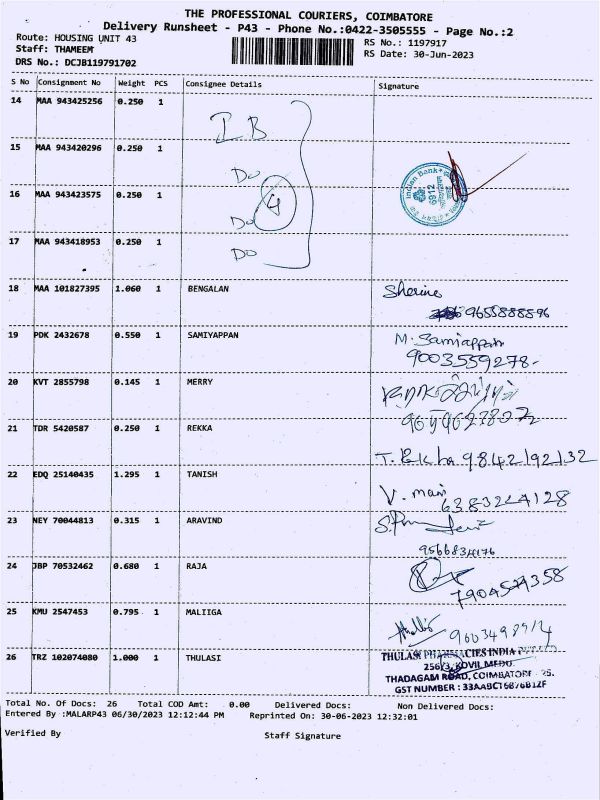 THE PROFESSIONAL COURIERS, COIMBATORE
Delivery Runsheet - P43 - Phone No.:0422-3505555 - Page No.:2
Route: HOUSING UNIT 43 RS No.: 1197917
Staff: THAMEEM RS Date: 30-Jun-2023
DRS No.: DCJB119791702
S No Consignment No Weight PCS Consignee Details Signature
14 MAA 943425256 0.250 1 I.B
15 MAA 943420296 0.250 1 Do
16 MAA 943423575 0.250 1 Do 4
17 MAA 943418953 0.250 1 Do
Indian Bank 6912
18 MAA 101827395 1.060 1 BENGALAN Sherine
9655888596
19 PDK 2432678 0.550 1 SAMIYAPPAN M. Samiappan
9003559278-
20 KVT 2855798 0.145 1 MERRY
21 TDR 5420587 0.250 1 REKKA
T. Rekha 9842192132
22 EDQ 25140435 1.295 1 TANISH V. mani
6383224128
23 NEY 70044813 0.315 1 ARAVIND
9566834176
24 JBP 70532462 0.680 1 RAJA
7904574358
25 KMU 2547453 0.795 1 MALIIGA
26 TRZ 102074080 1.000 1 THULASI THULASI PHARMACIES INDIA
256/3, KOVIL MEDU
THADAGAM ROAD, COIMBATORE - 25.
GST NUMBER :
Total No. Of Docs: 26 Total COD Amt: 0.00 Delivered Docs: Non Delivered Docs:
Entered By :MALARP43 06/30/2023 12:12:44 PM Reprinted On: 30-06-2023 12:32:01
Verified By Staff Signature